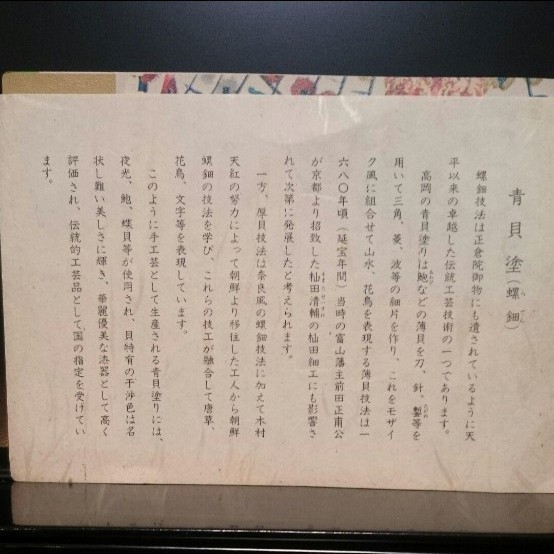 青貝塗(螺鈿)
螺鈿技法は正倉院御物にも遺されているように天
平以来の卓越した伝統工芸技術の一つであります。
高岡の青貝塗りは鮑などの薄貝を刀、針、鏨等を
用いて三角、菱、波等の細片を作り、これをモザイ
ク風に組合せて山水、花鳥を表現する薄貝技法は一
六八〇年頃(延宝年間)当時の富山藩主前田正甫公
が京都より招致した杣田清輔の杣田細工にも影響さ
れて次第に発展したと考えられます。
一方、厚貝技法は奈良風の螺鈿技法に加えて木村
天紅の努力によって朝鮮より移住した工人から朝鮮
螺鈿の技法を学び、これらの技工が融合して唐草、
花鳥、文字等を表現しています。
このように手工芸として生産される青貝塗りには、
夜光、鮑、蝶貝等が使用され、貝特有の干渉色は名
状し難い美しさに輝き、華麗優美な漆器として高く
評価され、伝統的工芸品として国の指定を受けてい
ます。